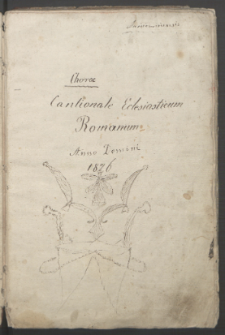 Choræ
Cantionale Eclesiasticum
Romanum
Anno Domini
1826